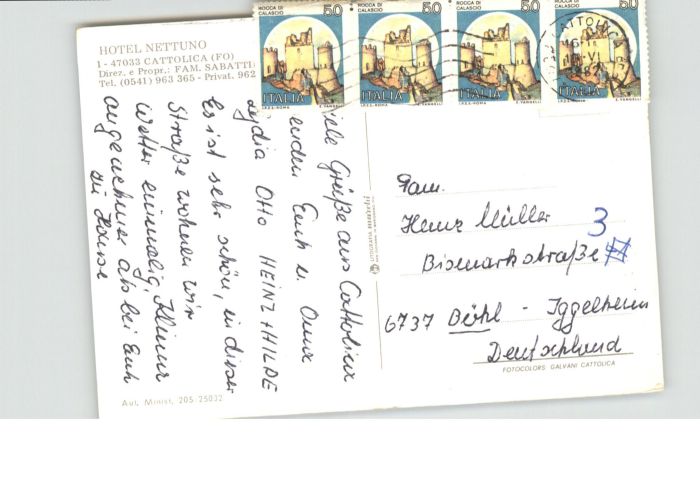 HOTEL NETTUNO
I - 47033 CATTOLICA (FO)
Direz. e Propr.: FAM. SABATTI
Tel. (0541) 963 365 - Privat. 962
ROCCA DI CALASCIO 50
ROCCA DI CALASCIO 50
ROCCA DI CALASCIO 50
50
ITALIA
ITALIA
ITALIA
ITALIA
I.P.Z.S.-ROMA E. VANGELLI
I.P.Z.S.-ROMA E. VANGELLI
I.P.Z.S.-ROMA E. VANGELLI
I.P.Z.S.-ROMA E. VANGELLI
CATTOLICA
Viele Grüße aus Cattolica
senden Euch u. Oma
Lydia Otto HEINZ + HILDE
Es ist sehr schön, in dieser
Straße wohnen wir
Wetter einmalig, Klima
angenehmer als bei Euch
zu Hause
Fam.
Heinz Müller
Bismarkstraße 3
6737 Böhl - Iggelheim
Deutschland
FOTOCOLORS GALVANI CATTOLICA
Aut. Minist. 205 25032